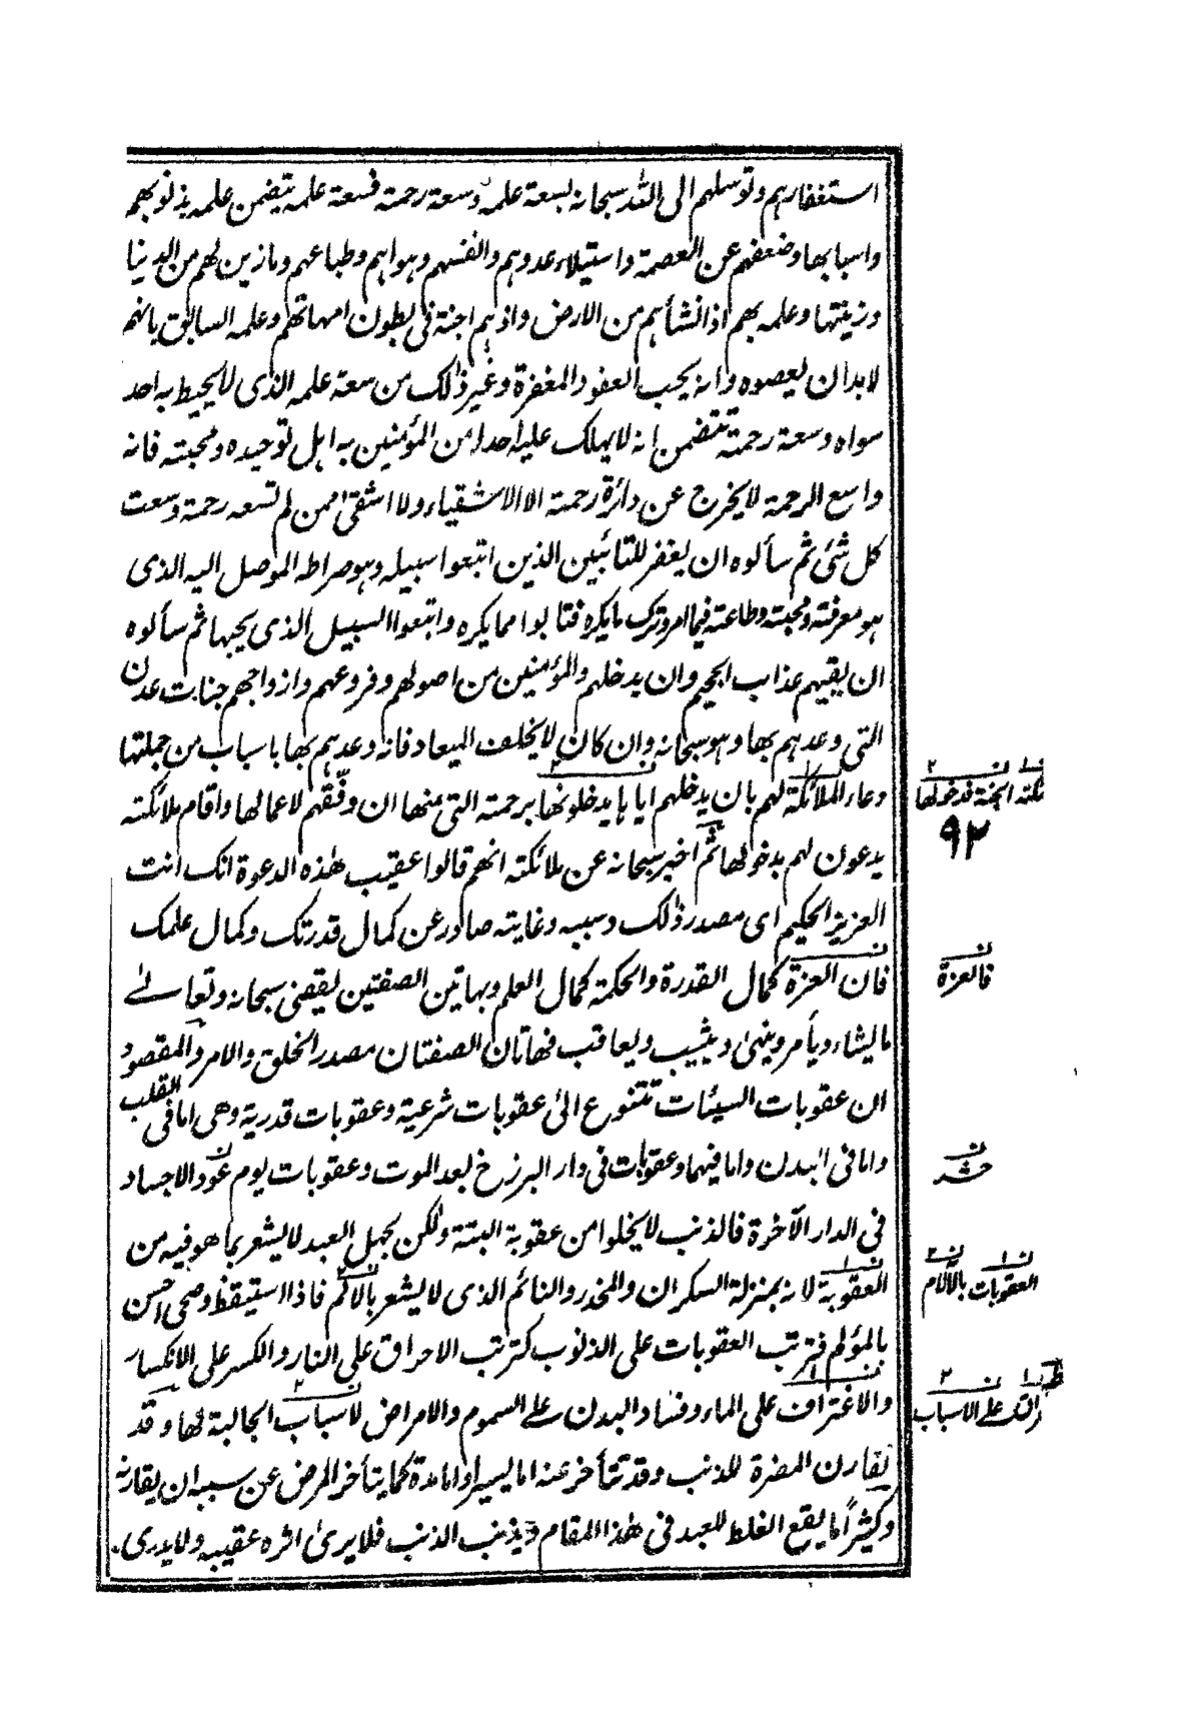 استغفارهم وتوسلهم الى الله سبحانه بسعة علمه وسعة رحمته فسعة علمه يتضمن علمه بذنوبهم
واسبابها وضعفهم عن العصمة واستيلاء عدوهم وانفسهم وهواهم وطباعهم وما زين لهم من الدنيا
وزينتها وعلمه بهم اذ انشأهم من الارض واذ هم اجنة فى بطون امهاتهم وعلمه السابق بانهم
لابد ان يعصوه وانه يحب العفو والمغفرة وغير ذلك من سعة علمه الذى لا يحيط به احد
سواه وسعة رحمته تتضمن انه لا يهلك عليه احد من المؤمنين به اهل توحيده ومحبته فانه
واسع الرحمة لا يخرج عن دائرة رحمته الا الاشقياء ولا اشقى ممن لم تسعه رحمة وسعت
كل شئ ثم سألوه ان يغفر للتائبين الذين اتبعوا سبيله وهو صراطه الموصل اليه الذى
هو معرفته ومحبته وطاعته فيما امر وترك ما يكره فتابوا مما يكره واتبعوا السبيل الذى يحبها ثم سألوه
ان يقيهم عذاب الجحيم وان يدخلهم والمؤمنين من اصولهم وفروعهم وازواجهم جنات عدن
التى وعدهم بها وهو سبحانه وان كان لا يخلف الميعاد فانه وعدهم بها باسباب من جملتها
دعاء الملائكة لهم بان يدخلهم اياها يدخلونها برحمته التى منها ان وفقهم لاعمالها واقام ملائكته
يدعون لهم بدخولها ثم اخبر سبحانه عن ملائكته انهم قالوا عقيب هذه الدعوة انك انت
العزيز الحكيم اى مصدر ذلك وسببه وغايته صادر عن كمال قدرتك وكمال علمك
فان العزة كمال القدرة والحكمة كمال العلم وبهاتين الصفتين يقضى سبحانه وتعالى
ما يشاء ويأمر وينهى ويثيب ويعاقب فهاتان الصفتان مصدر الخلق والامر والمقصود
ان عقوبات السيئات تتنوع الى عقوبات شرعية وعقوبات قدرية وهى اما فى القلب
واما فى البدن واما فيهما وعقوبات فى دار البرزخ بعد الموت وعقوبات يوم عود الاجساد
فى الدار الآخرة فالذنب لا يخلوا من عقوبة البتة ولكن بجهل العبد لا يشعر بما هو فيه من
العقوبة لانه بمنزلة السكران والمخدر والنائم الذى لا يشعر بالالم فاذا استيقظ وصحى احس
بالمؤلم فترتب العقوبات على الذنوب كترتب الاحراق على النار والكسر على الانكسار
والاغتراف على الماء وفساد البدن على السموم والامراض لاسباب الجالبة لها وقد
تقارن المضرة للذنب وقد تتأخر عنه اما يسيرا واما مدة كما يتأخر المرض عن سببه ان يقارنه
وكثيرًا ما يقع الغلط للعبد فى هذا المقام ويذنب الذنب فلا يرى اثره عقيبه ولا يدرى
الجنة فدخولها
٩٢
فالعزة
حشر
العقوبات بالآلام
على الاسباب